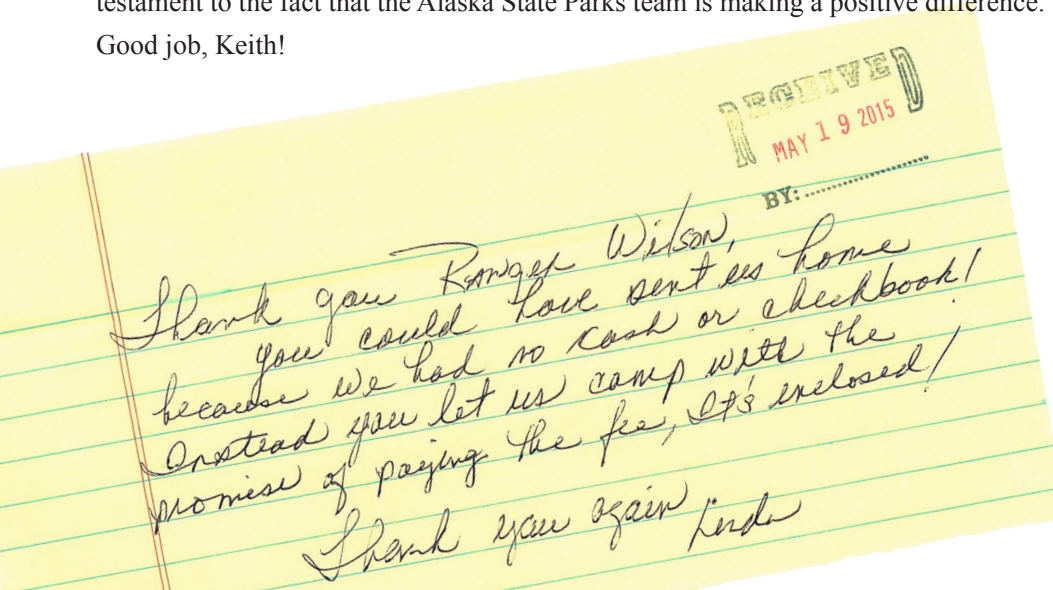 testament to the fact that the Alaska State Parks team is making a positive difference.
Good job, Keith!
RECEIVED
MAY 19 2015
BY:
Thank you Ranger Wilson,
you could have sent us home
because we had no cash or checkbook!
Instead you let us camp with the
promise of paying the fee, It's enclosed!
Thank you again
Linda